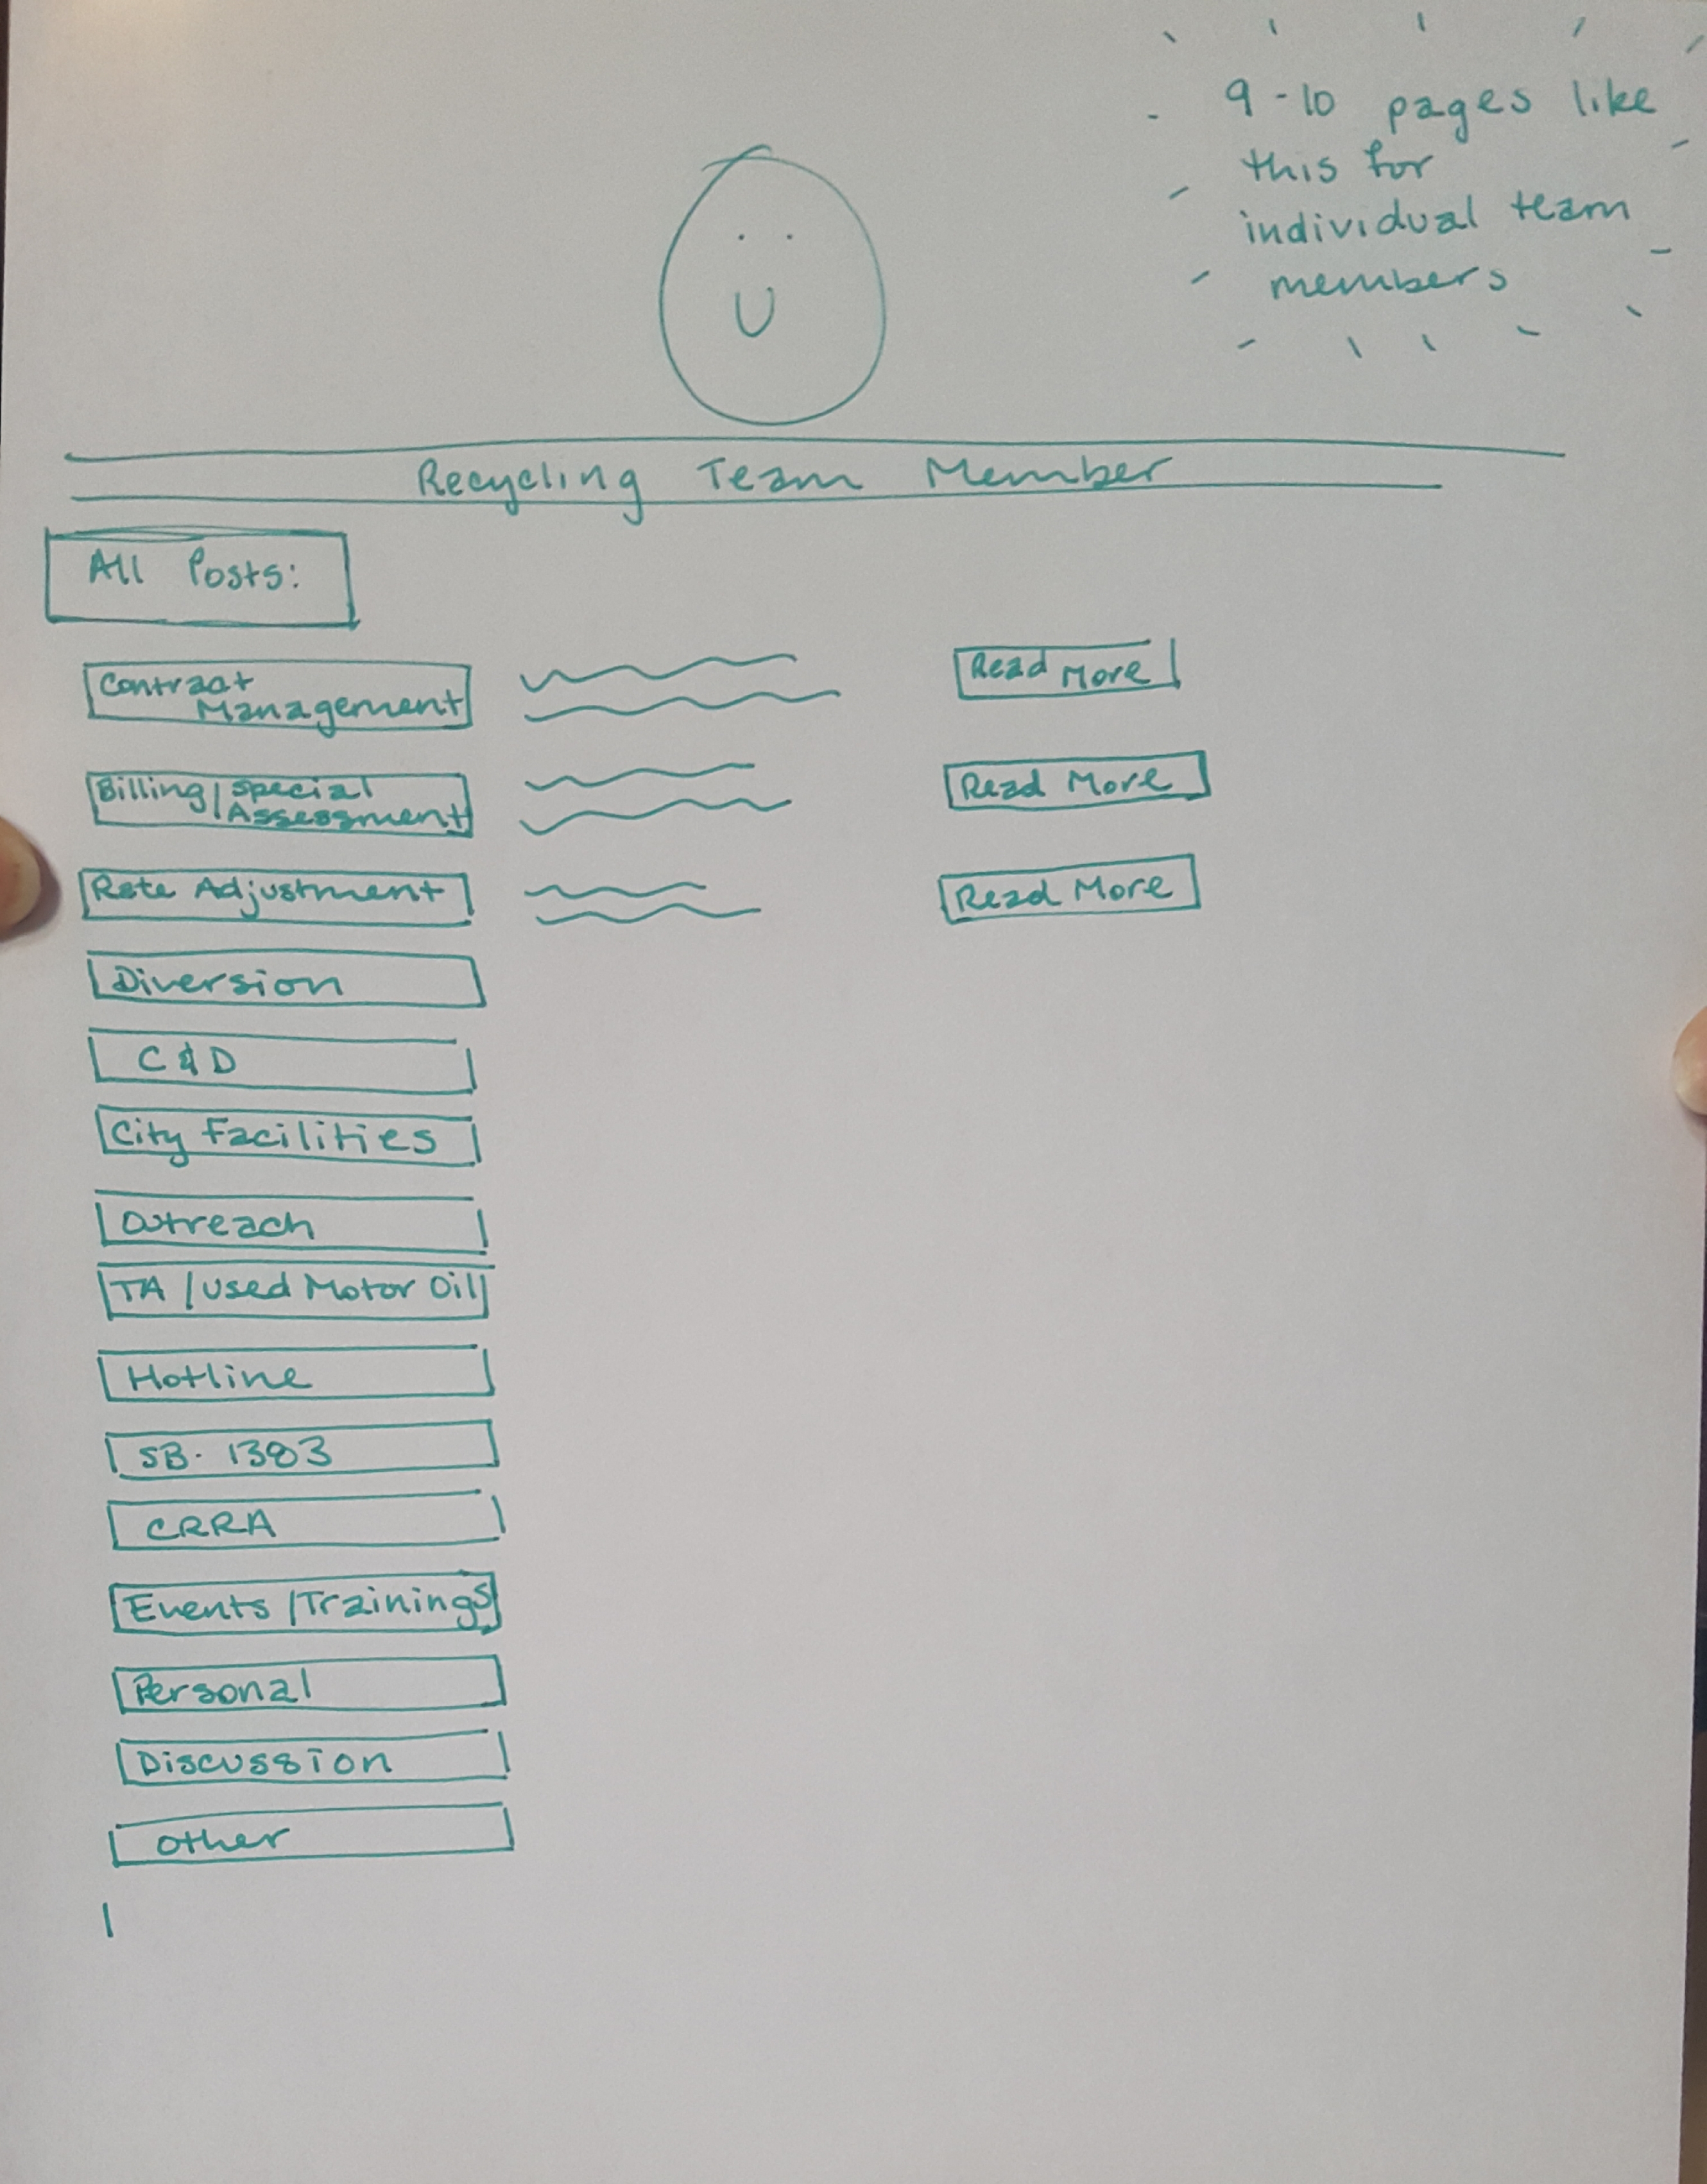 9-10 pages like
this for
individual team
members
Recycling Team Member
All Posts:
Contract
Management
Read More
Billing/Special
Assessment
Read More
Rate Adjustment
Read More
Diversion
C&D
City Facilities
Outreach
TA/Used Motor Oil
Hotline
SB. 1383
CRRA
Events/Trainings
Personal
Discussion
Other